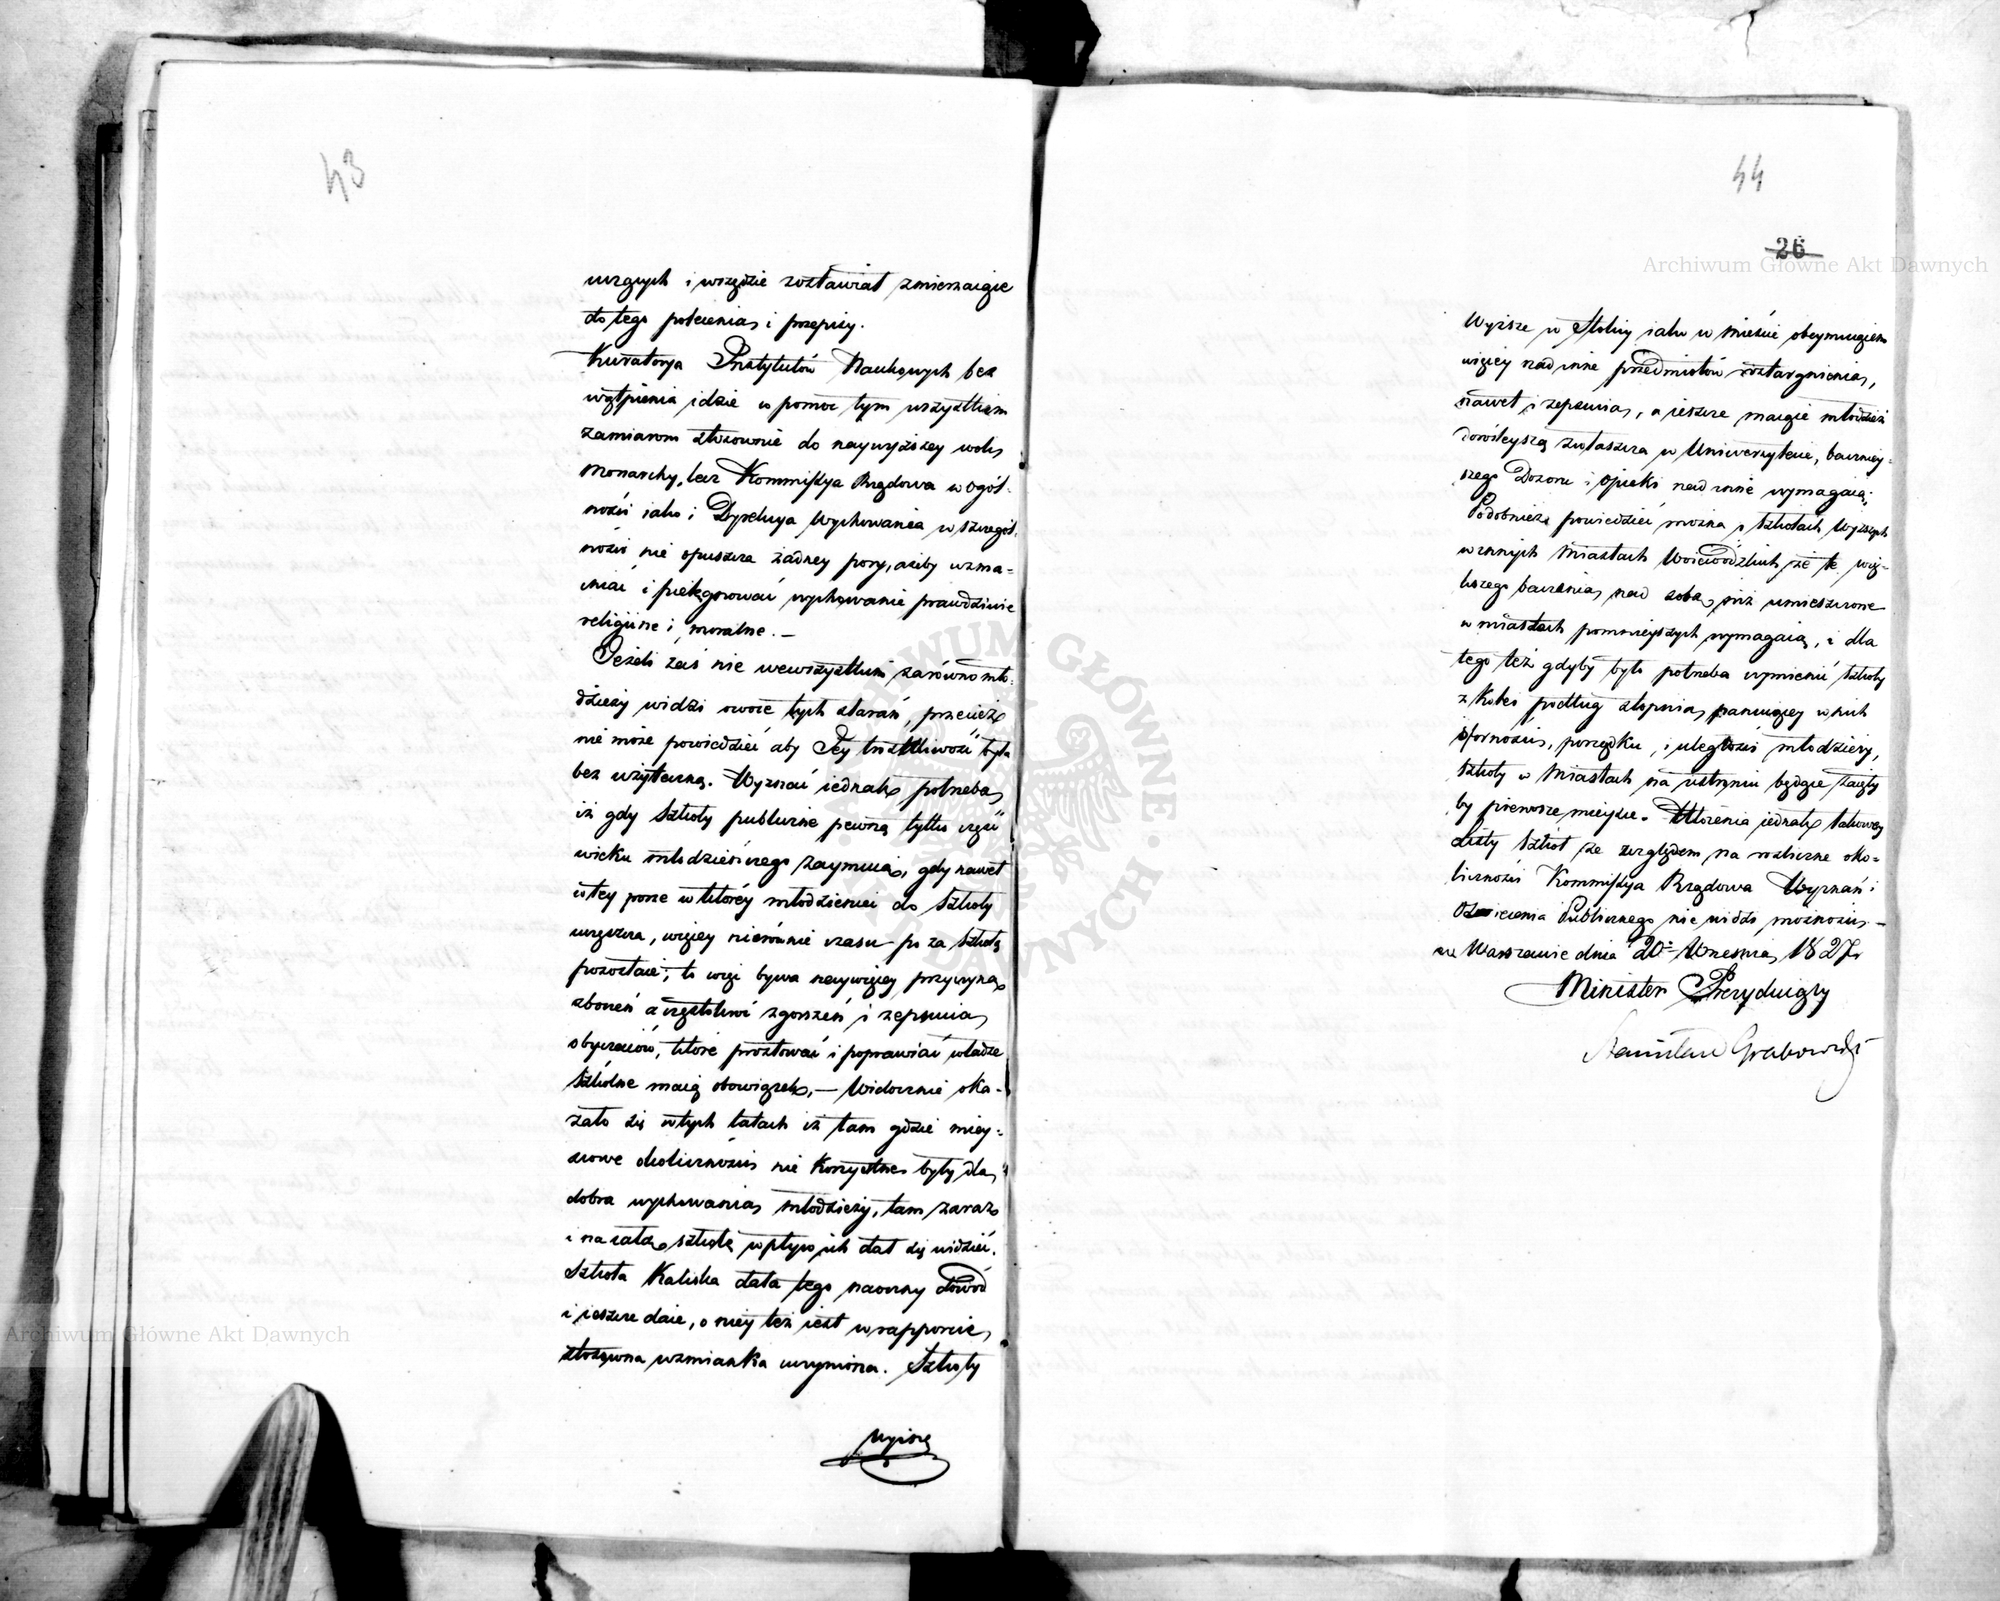 43
uczących i wszędzie zostawiał zmierzaiące
do tego polecenia i przepisy.
Kuratorya Instytutów Naukowych bez
wątpienia idzie w pomoc tym wszystkiem
zamiarom stosownie do naywyższey woli
Monarchy, lecz Kommissya Rządowa w ogól-
ności iako i Dyrekcya Wychowania w szczegól-
ności nie opuszcza żadney pory, ażeby wzma-
cniać i pielęgnować wychowanie prawdziwie
religiine i moralne. —
Jeżeli zaś nie wewszystkiej zarówno mło-
dzieży widzi owoce tych starań, przecież
nie może powiedzieć aby Jey troskliwość była
bez użyteczną. Wyznać iednak potrzeba,
iż gdy Szkoły publiczne pewną tylko część
wieku młodzieńczego zaymuią, gdy nawet
w tey porze w którey młodzieniec do Szkoły
uczęszcza, więcey nierównie czasu po za Szkołą
pozostaie; to więc bywa naywięcey przyczyną
zboczeń a częstokroć zgorszeń i zepsucia
obyczaiów, które prostować i poprawiać władze
Szkolne maią obowiązek. — Widocznie oka-
zało się w tych latach iż tam gdzie miey-
scowe okoliczności nie korzystne były dla
dobra wychowania młodzieży, tam zaraz
i na całą szkołę wpływ ich dał się widzieć.
Szkoła Kaliska dała tego naoczny dowód
i ieszcze daie, o niey też iest w rapporcie
stosowna wzmianka uczyniona. Szkoły
wyższe
44
26
Wyższe w Stolicy iako w mieście obeymuiącem
więcey nad inne przedmiotów roztargnienia,
nawet i zepsucia, a ieszcze maiące młodzież
dorosleyszą zwłaszcza w Uniwersytecie, baczniey-
szego Dozoru i opieki nad inne wymagaią.
Podobnież powiedzieć można o Szkołach Wyższych
w innych Miastach Woiewódzkich, że te więk-
szego baczenia nad sobą, niż umieszczone
w miastach pomnieyszych wymagaią, i dla
tego też gdyby było potrzeba wymienić szkoły
z kolei podług stopnia panuiącey w nich
sforności, porządku, i uległości młodzieży,
Szkoły w Miastach na ustroniu będące zaięły
by pierwsze mieysce. Ułożenia iednak takowey
Listy Szkół ze względem na rozliczne oko-
liczności Kommissya Rządowa Wyznań i
Oświecenia Publicznego nie widzi możności —
w Warszawie dnia 20º Września 1827 r
Minister Prezyduiący
Stanisław Grabowski
Archiwum Główne Akt Dawnych
Archiwum Główne Akt Dawnych
ARCHIWUM GŁÓWNE AKT DAWNYCH